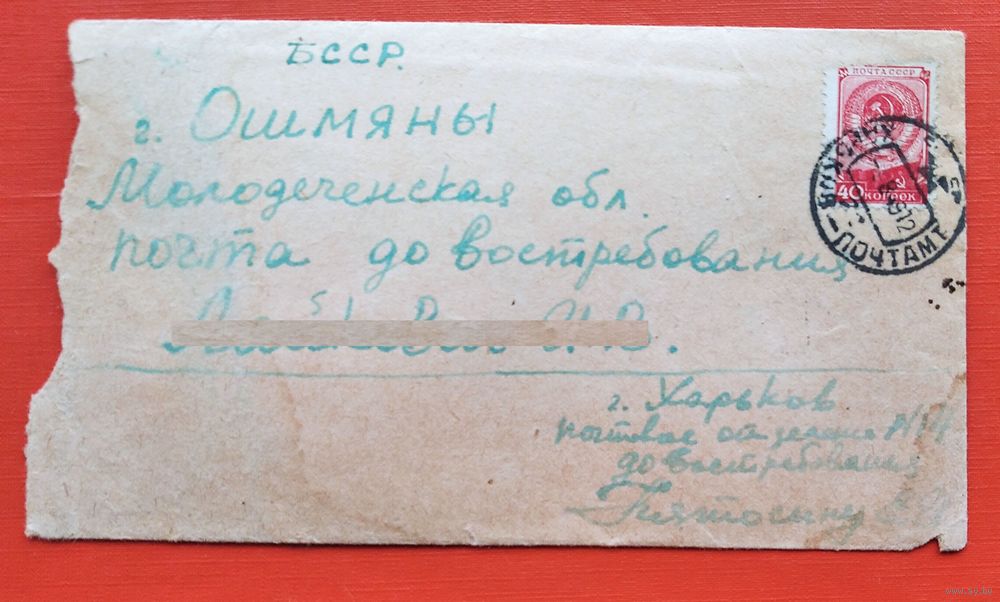 БССР.
г. Ошмяны
Молодеченская обл.
почта до востребования
И.В.
г. Харьков
почтовое отделение №14
до востребования
ПОЧТА СССР
40 КОПЕЕК
ПОЧТАМТ
www.ay.by